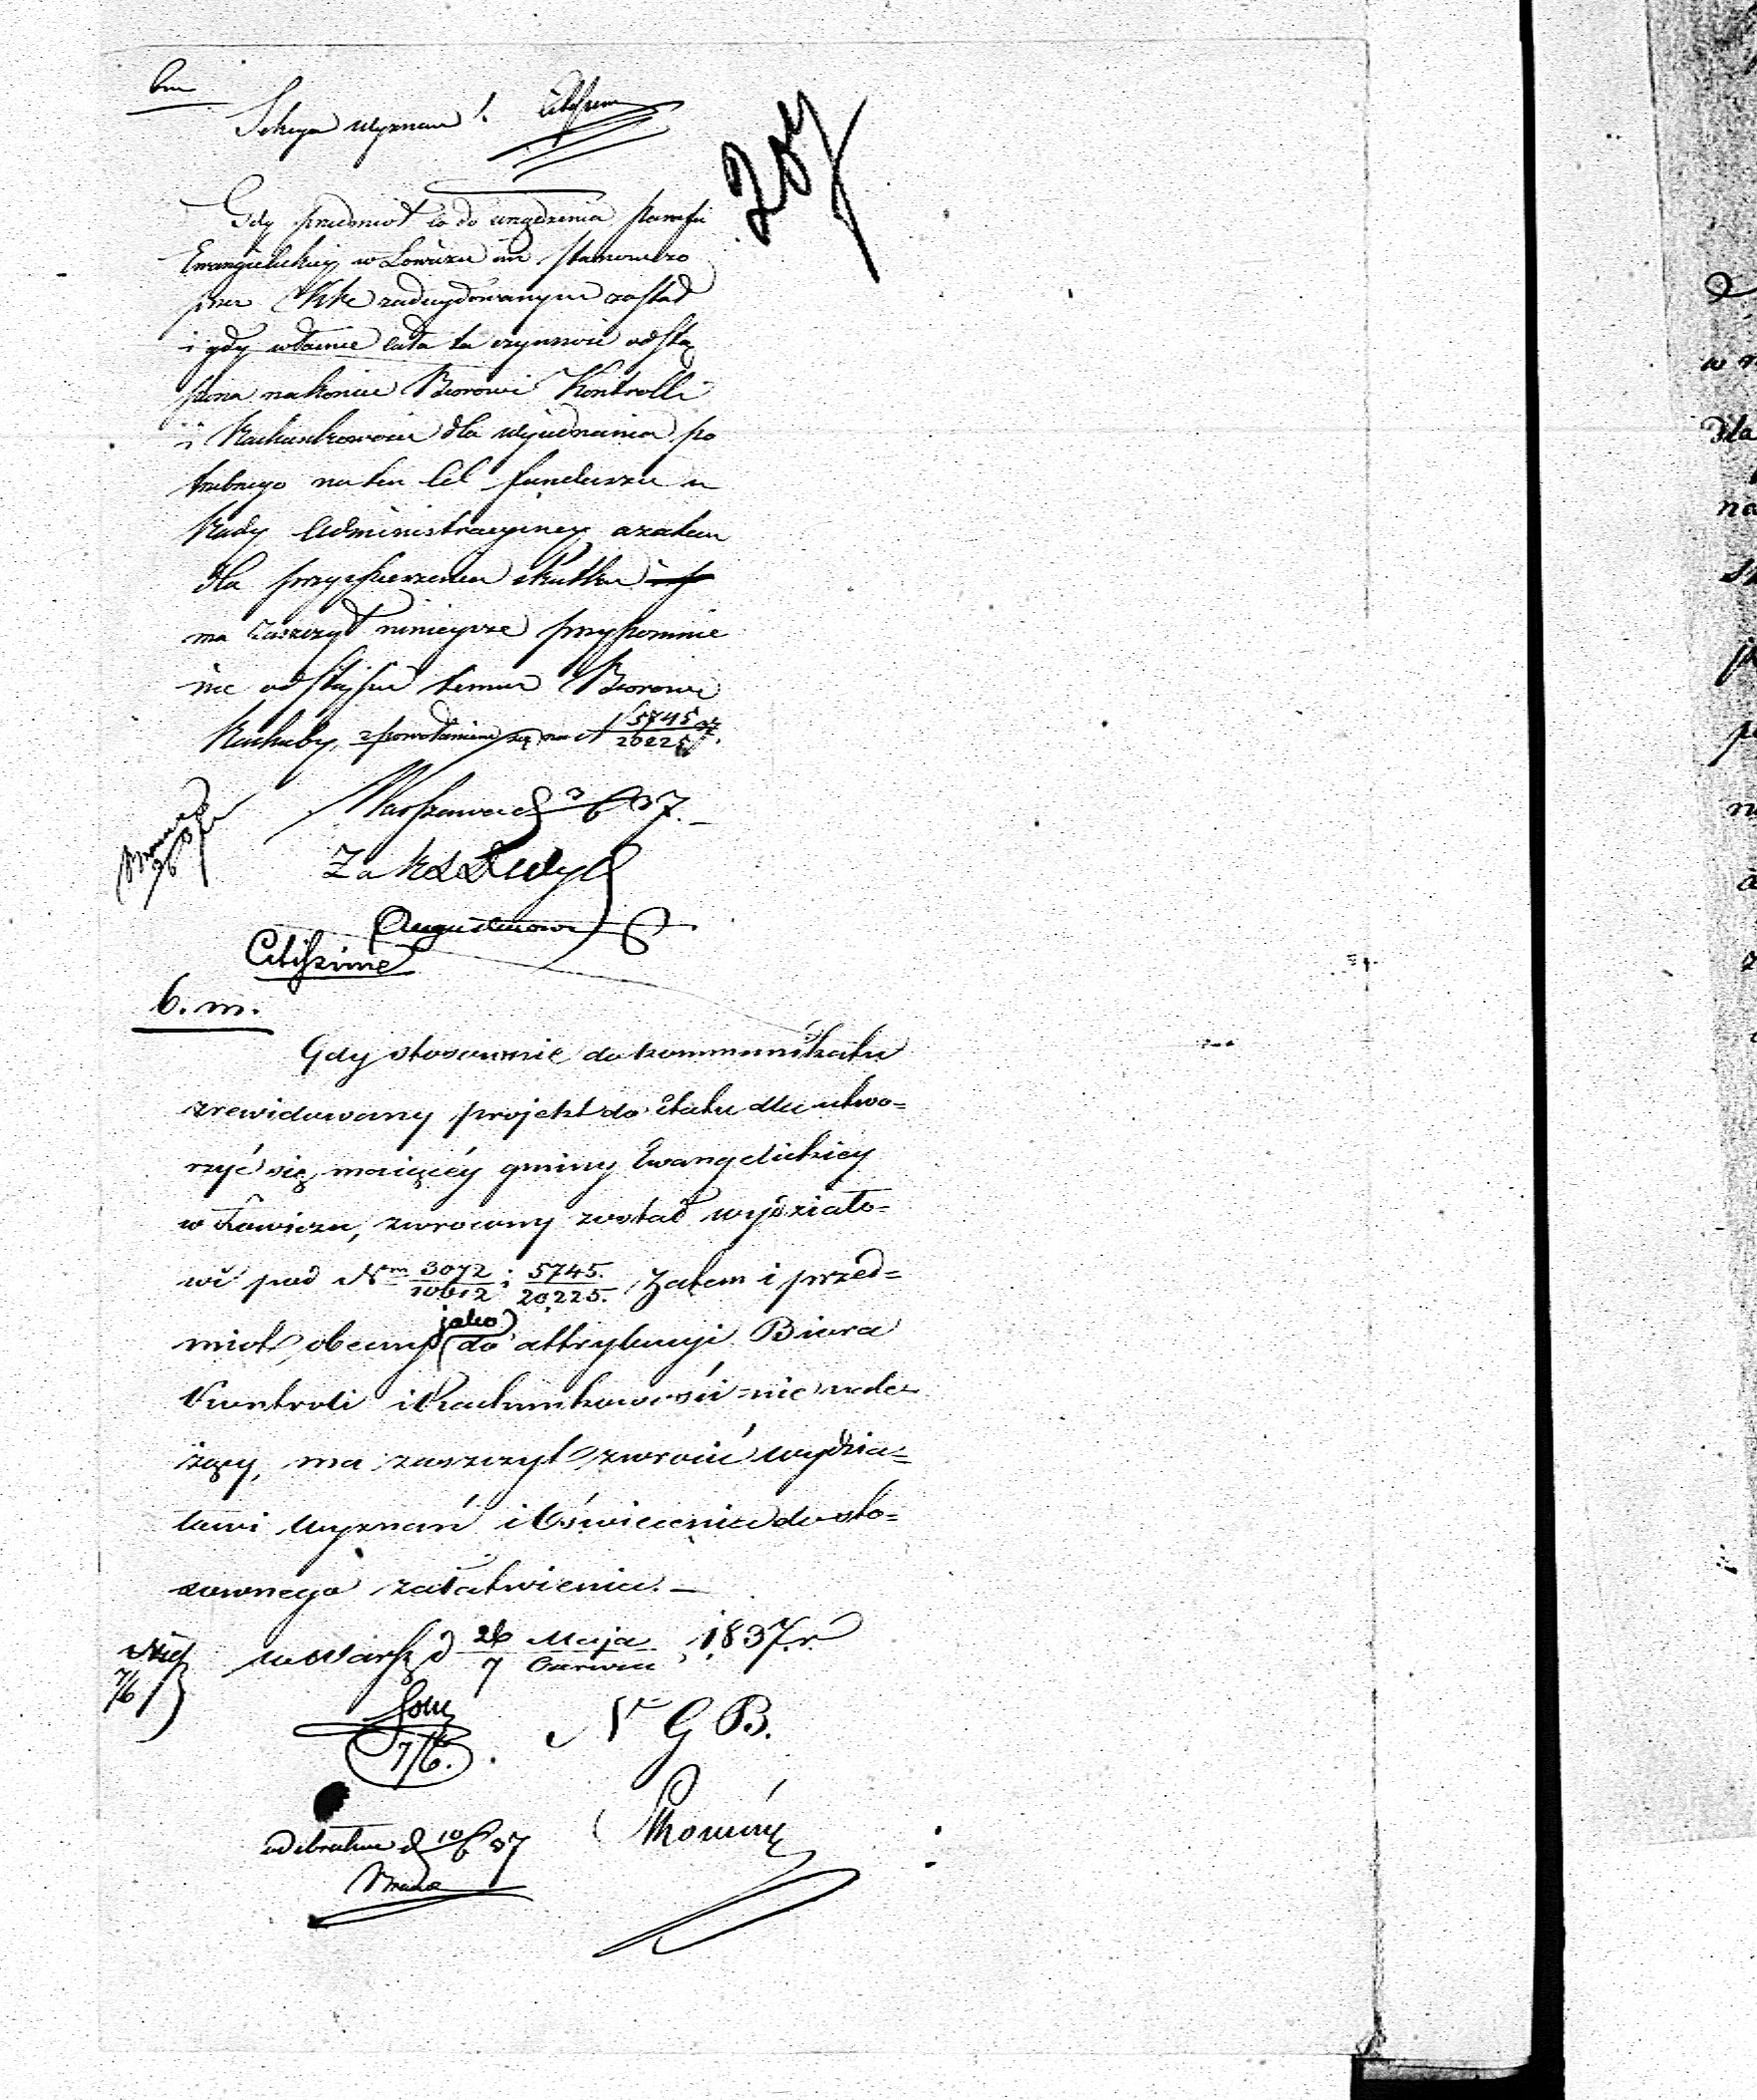 b m
Sekcya Wyznań
Citissime
204
Gdy przedmiot co do urządzenia parafii
Ewangielickiéy w Łowiczu iuż stanowczo
przez zadecydowanym został
i gdy właśnie cała ta czynność odstą
piona nakoniec Biorowi Kontrolli
i Rachunkowości dla wyiednania po
trzebnego na ten Cel funduszu u
Rady Administracyiney azatem
dla przyspieszenia skutku
ma zaszczyt ninieysze przypomnie
nie odstąpić temuż Biorowi
Rachuby, z powołaniem się na N 5745/20225
Warszawa d 3/6 37.
Za
Citissime
b. m.
Gdy stosownie do kommunikatu
zrewidowany projekt do etatu dla utwo=
rzyć się maiącéy gminy Ewangelickiey
w Łowiczu, zwrócony został wydziało=
wi pod Nm 3072/10612 i 5745./20,225. Zatem i przed=
miot obecny jako do attrybucyi Biura
Kontroli i Rachunkowości nie nale=
żący, ma zaszczyt zwrócić wydzia=
łowi Wyznań i Oświecenia do sto=
sownego załatwienia. –
w Warsz d 26 Maja/7 Czerwca 1837. r
7/6
7/6.
N G B.
odebrałem d 10/6 37